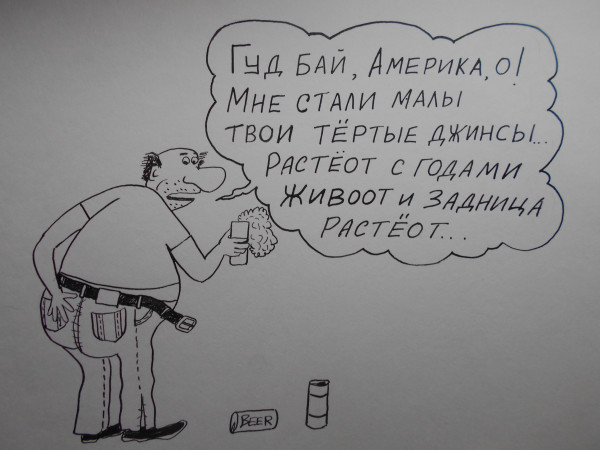 Гуд бай, Америка, о!
Мне стали малы
твои тёртые джинсы...
Растёот с годами
живоот и задница
растёот...
BEER